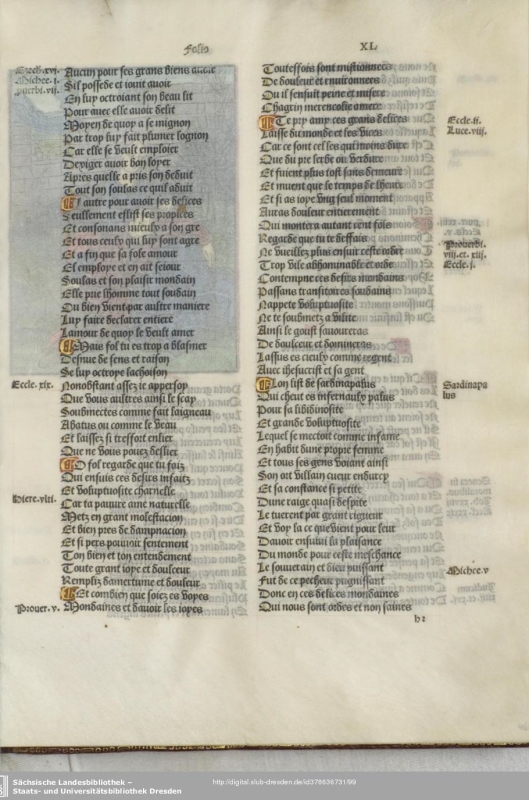 Folio XL
Ezech. xvi.
Michee. i.
Prverbi. vii.
Aucun pour ses grans biens
Sil possede et iouit auoir
En luy octroiant son beau lit
Pour auec elle auoir delit
Moyen de quoy a se mignon
Par trop luy fait plumer lognon
Car elle se veult emploier
Dexiger auoir bon loyer
Apres quelle a pris son deduit
Tout son soulas ce quil aduit
autre pour auoir ses delices
Seullement eslist ses propices
Et consonans mieulx a son gre
Et tous ceulx qui luy sont agre
Et a fin que sa fole amour
Et employe et en ait seiour
Soulas et son plaisir mondain
Elle prie lhomme tout soudain
Ou bien vient par aultre maniere
Luy faire declarer entiere
Lamour de quoy le veult amer
Mais fol tu es trop a blasmer
Desnue de sens et raison
Se luy octroye lachoison
Eccle. xix.
Nonobstant assez ie appercoy
Que vous aultres ainsi le scay
Soubmectes comme fait laigneau
Abatus ou comme le veau
Et laissez si tresfort enlier
Que ne vous pouez deslier
O fol regarde que tu faiz
Qui ensuis ces desirs infaitz
Et voluptuosite charnelle
Hiere. viii.
Car ta pauure ame naturelle
Metz en grant molestacion
Et bien pres de dampnacion
Et si pers pouuoir sentement
Ton bien et ton entendement
Toute grant ioye et doulceur
Rempliz damertume et douleur
Et combien que soiez es voyes
Prouer. v.
Mondaines et dauoir les ioyes
Toutessois sont mistionnees
De douleur et enuironnees
Ou il sensuit peine et misere
Chagrin merencolie amere
Te pry amy ces grans delices
Eccle. ii.
Luce. viii.
Laisse du monde et les vices
Car ce sont cel les qui moins dure
Que du pre lerbe ou verdure
Et fuient plus tost sans demeure
Et muent que le temps de lheure
Et si as ioye vng seul moment
Auras douleur entierement
Qui montera autant cent fois
Regarde que tu te deffais
Prouerbi.
viii. et. xii.
Eccle. i.
Ne vueillez plus ensuir ceste ordre
Trop vile abhominable et orde
Contempne ces desirs mondains
Passans transitoires soudains
Nappete voluptuosite
Ne te soubmetz a vilite
Ainsi le goust sauoureras
De doulceur et domineras
Lassus es cieulx comme regent
Auec ihesucrist et sa gent
Lon list de sardinapalus
Sardinapalus
Qui cheut es infernaulx palus
Pour sa libidinosite
Et grande voluptuosite
Lequel se mectoit comme infame
En habit dune propre femme
Et tous ses gens voiant ainsi
Son ort villain cueur endurcy
Et sa constance si petite
Dune raige quasi despite
Le tuerent par grant rigueur
Et voy la ce que vient pour leur
Dauoir ensuiui la plaisance
Du monde pour ceste meschance
Le souuerain et dieu puissant
Michee. v
Fut de ce pecheur pugnissant
Donc en ces delices mondaines
Qui nous sont ordes et non saines
h2
Sächsische Landesbibliothek –
Staats- und Universitätsbibliothek Dresden
http://digital.slub-dresden.de/id376636731/99